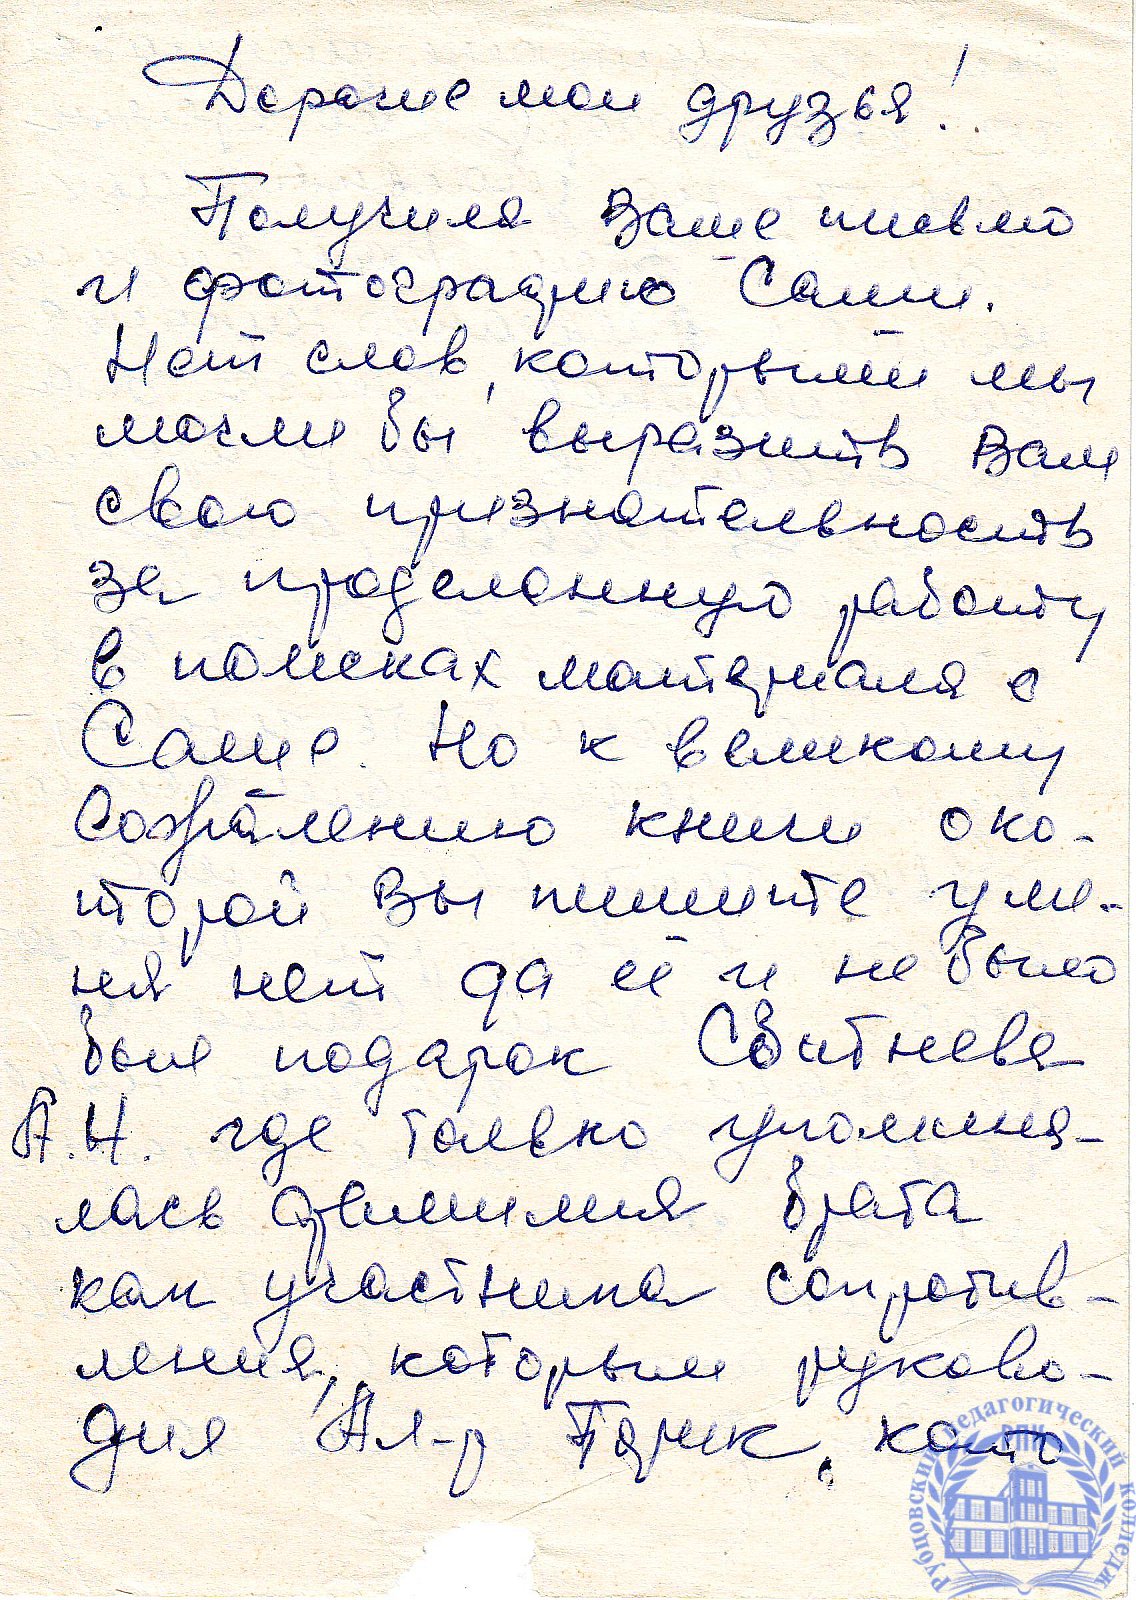 Дорогие мои друзья!
Получила Ваше письмо
и фотографию Саши.
Нет слов, которыми мы
могли бы выразить Вам
свою признательность
за проделанную работу
в поисках материала о
Саше. Но к великому
сожалению книги око-
торой Вы пишите у ме-
ня нет да её и не было
был подарок Свитнева
А.Н. где только упомина-
лась фамилия брата
как участника сопротив-
ления, которым руково-
дил Ал-р
Рубцовский педагогический колледж
РПК